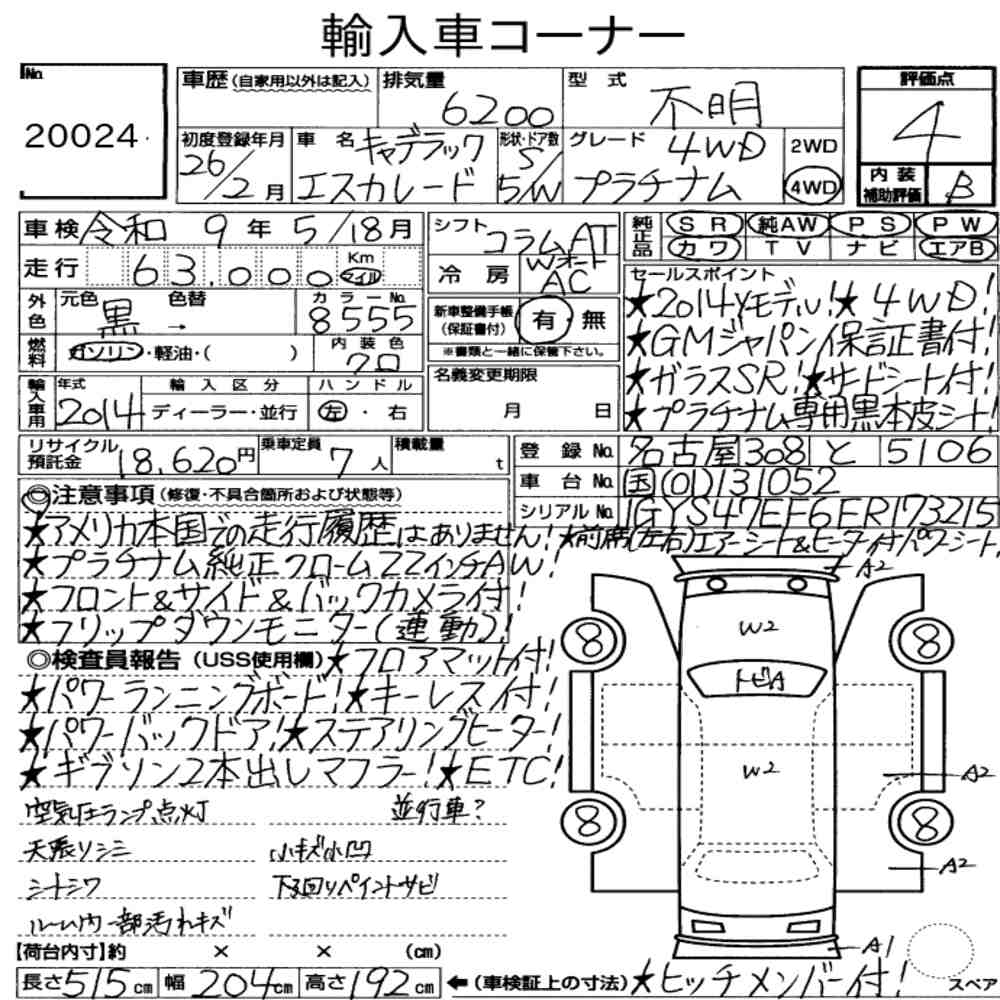 輸入車コーナー
No.
20024
車歴(自家用以外は記入)
排気量
6200
型式
不明
評価点
4
初度登録年月
26/2月
車名
キャデラック
エスカレード
形状・ドア数
S/
5/W
グレード
4WD
プラチナム
2WD
4WD
内装
補助評価
B
車検 令和 9年 5/18月
走行 63,000 Km マイル
外色 元色 黒 → 色替 カラーNo. 8555
燃料 ガソリン・軽油・( ) 内装色 クロ
輸入車用 年式 2014 輸入区分 ディーラー・並行 ハンドル 左・右
シフト コラムAT
冷房 Wオート AC
新車整備手帳(保証書付) 有・無
※書類と一緒に保管下さい。
名義変更期限
月 日
純正品 SR 純AW PS PW
カワ TV ナビ エアB
セールスポイント
★2014Yモデル!★4WD!
★GMジャパン保証書付!
★ガラスSR!★サードシート付!
★プラチナム専用黒本皮シート!
リサイクル預託金 18,620円 乗車定員 7人 積載量 t
登録No. 名古屋308 と 5106
車台No. 国(01)131052
シリアルNo. 1GYS47EF6ER173215
◎注意事項(修復・不具合箇所および状態等)
★アメリカ本国での走行履歴はありません!★前席(左右)エアーシート&ヒーター付パワーシート!
★プラチナム純正クローム22インチAW!
★フロント&サイド&バックカメラ付!
★フリップダウンモニター(連動)!
◎検査員報告(USS使用欄)★フロアマット付!
★パワーランニングボード!★キーレス付!
★パワーバックドア!★ステアリングヒーター!
★ギブソン2本出しマフラー!★ETC!
空気圧ランプ点灯 並行車?
天張りシミ 小キズ小凹
シートシワ 下回りペイントサビ
ルーム内一部汚れキズ
A2
W2
8
8
トビA
W2
A2
8
8
A2
A1
スペア
【荷台内寸】約 × × (cm)
長さ515cm 幅204cm 高さ192cm ←(車検証上の寸法)★ヒッチメンバー付!